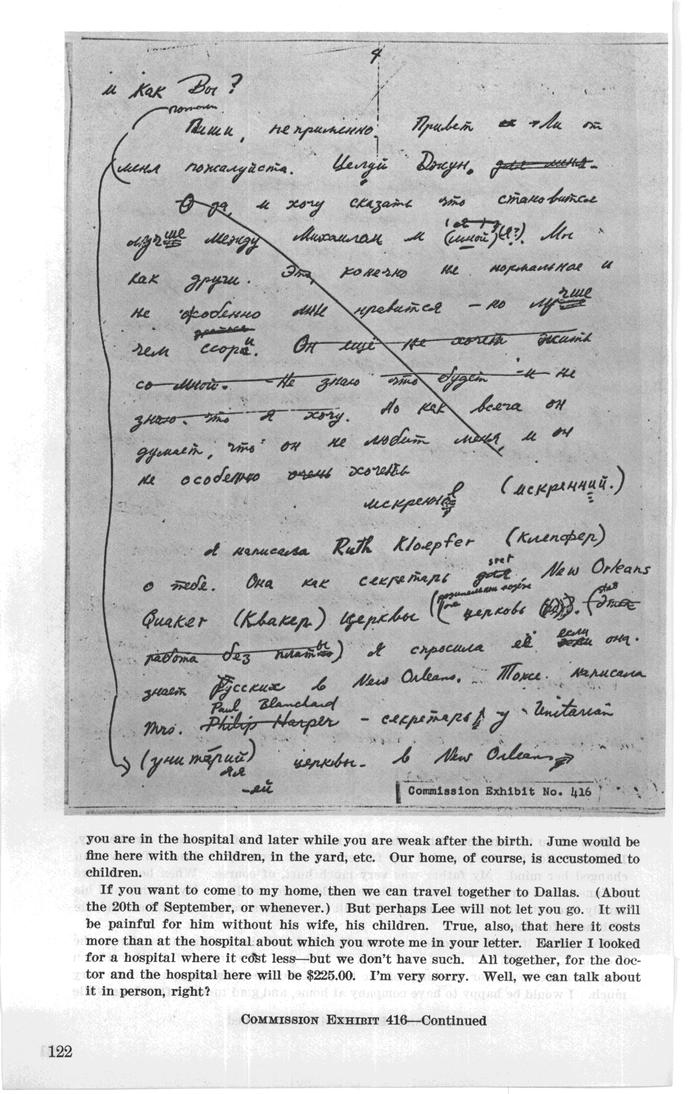 4
и как Вы?
потом
Пиши, неприменно. Привет Ли от
меня пожалуйста. Целуй Джун. для меня.
О да, и хочу сказать что становится
лучше между Михаилом и (мной)(я?). Мы
как други. Это, конечно не нормальное и
не особенно мне нравится - но лучше
чем ссоры. Он ещё не хочет жить
со мной. - Не знаю что будет - и не
знаю что я хочу. Но как всегда он
думает, что он не любит меня, и он
не особенно очень хочеть
искренний (искренний.)
Я написала Ruth Kloepfer (Клепфер)
о тебе. Она как секретарь New Orleans
Quaker (Квакер) церквы (церковь
работа без платы) Я спросила её если она
знает Русских в New Orleans. Тоже написала
Paul Blanchard
Mrs. Philip Harper - секретарь у Unitarian
(унитарий) церквы - в New Orleans
ая
-ей
Commission Exhibit No. 416
you are in the hospital and later while you are weak after the birth. June would be
fine here with the children, in the yard, etc. Our home, of course, is accustomed to
children.
If you want to come to my home, then we can travel together to Dallas. (About
the 20th of September, or whenever.) But perhaps Lee will not let you go. It will
be painful for him without his wife, his children. True, also, that here it costs
more than at the hospital about which you wrote me in your letter. Earlier I looked
for a hospital where it cost less—but we don't have such. All together, for the doc-
tor and the hospital here will be $225.00. I'm very sorry. Well, we can talk about
it in person, right?
COMMISSION EXHIBIT 416—Continued
122